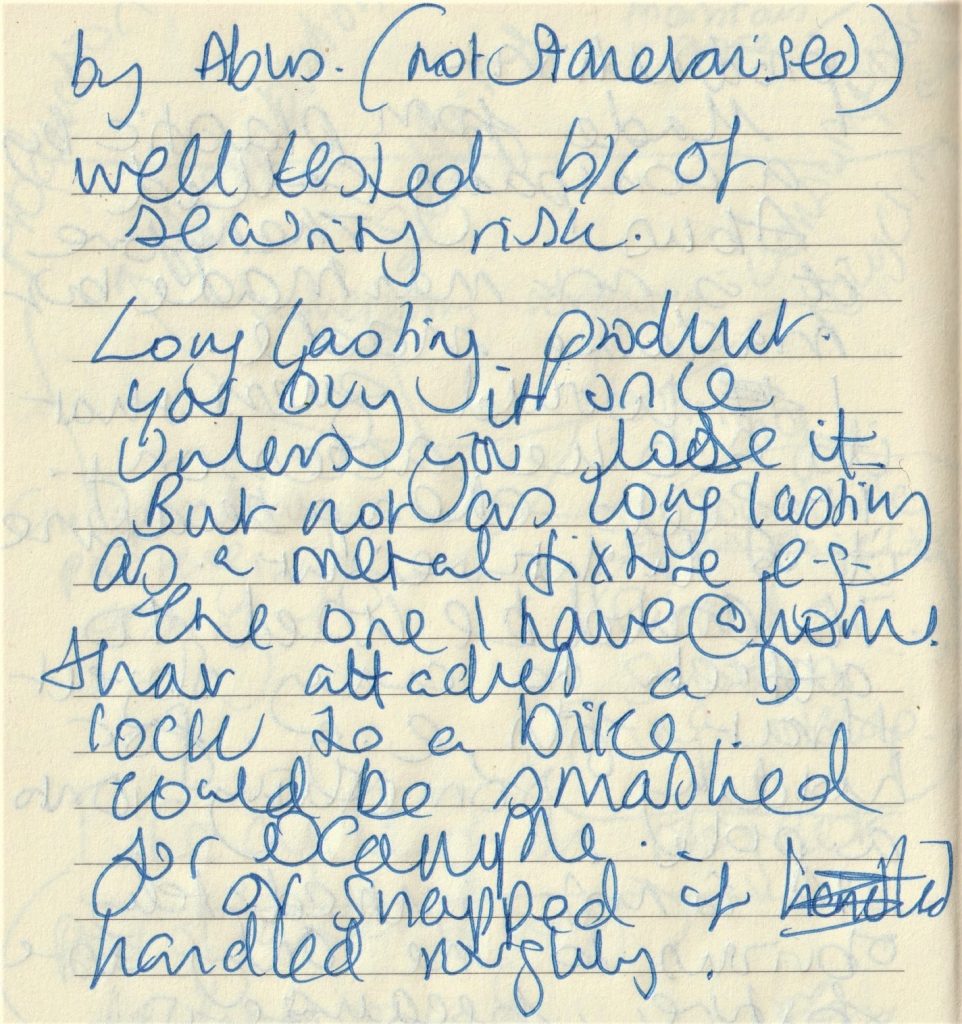 by Abus. (not standarised)
well tested b/c of
security risk.
Long lasting product.
you buy it once
unless you loose it
But not as long lasting
as a metal fixture e.g.
the one I have @ hom.
that attaches a D
lock to a bike.
could be smashed
for example.
or snapped if
handled roughly.